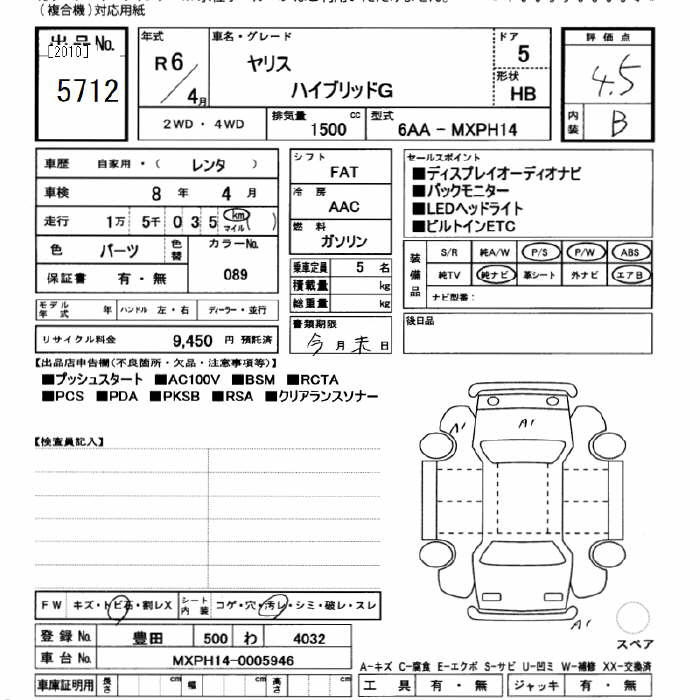 (複合機)対応用紙
出品No.
[2010]
5712
年式
R6/4月
車名・グレード
ヤリス
ハイブリッドG
ドア
5
形状
HB
評価点
4.5
内装
B
2WD・4WD
排気量
1500 cc
型式
6AA-MXPH14
車歴 自家用・( レンタ )
車検 8年 4月
走行 1万 5千 0 3 5 km マイル ( )
色 パーツ 色替
カラーNo.
089
保証書 有・無
モデル年式 年 ハンドル 左・右 ディーラー・並行
リサイクル料金 9,450 円 預託済
シフト
FAT
冷房
AAC
燃料
ガソリン
乗車定員 5 名
積載量 kg
総重量 kg
書類期限
今月末日
セールスポイント
■ディスプレイオーディオナビ
■バックモニター
■LEDヘッドライト
■ビルトインETC
装備品
S/R 純A/W P/S P/W ABS
純TV 純ナビ 革シート 外ナビ エアB
ナビ型番:
後日品
【出品店申告欄(不良箇所・欠品・注意事項等)】
■プッシュスタート ■AC100V ■BSM ■RCTA
■PCS ■PDA ■PKSB ■RSA ■クリアランスソナー
【検査員記入】
A1
A1
A1
スペア
FW キズ・トビ石・割レX シート内装 コゲ・穴・汚レ・シミ・破レ・スレ
登録No. 豊田 500 わ 4032
車台No. MXPH14-0005946
車庫証明用 長さ cm 幅 cm 高さ cm
A-キズ C-腐食 E-エクボ S-サビ U-凹ミ W-補修 XX-交換済
工具 有・無 ジャッキ 有・無